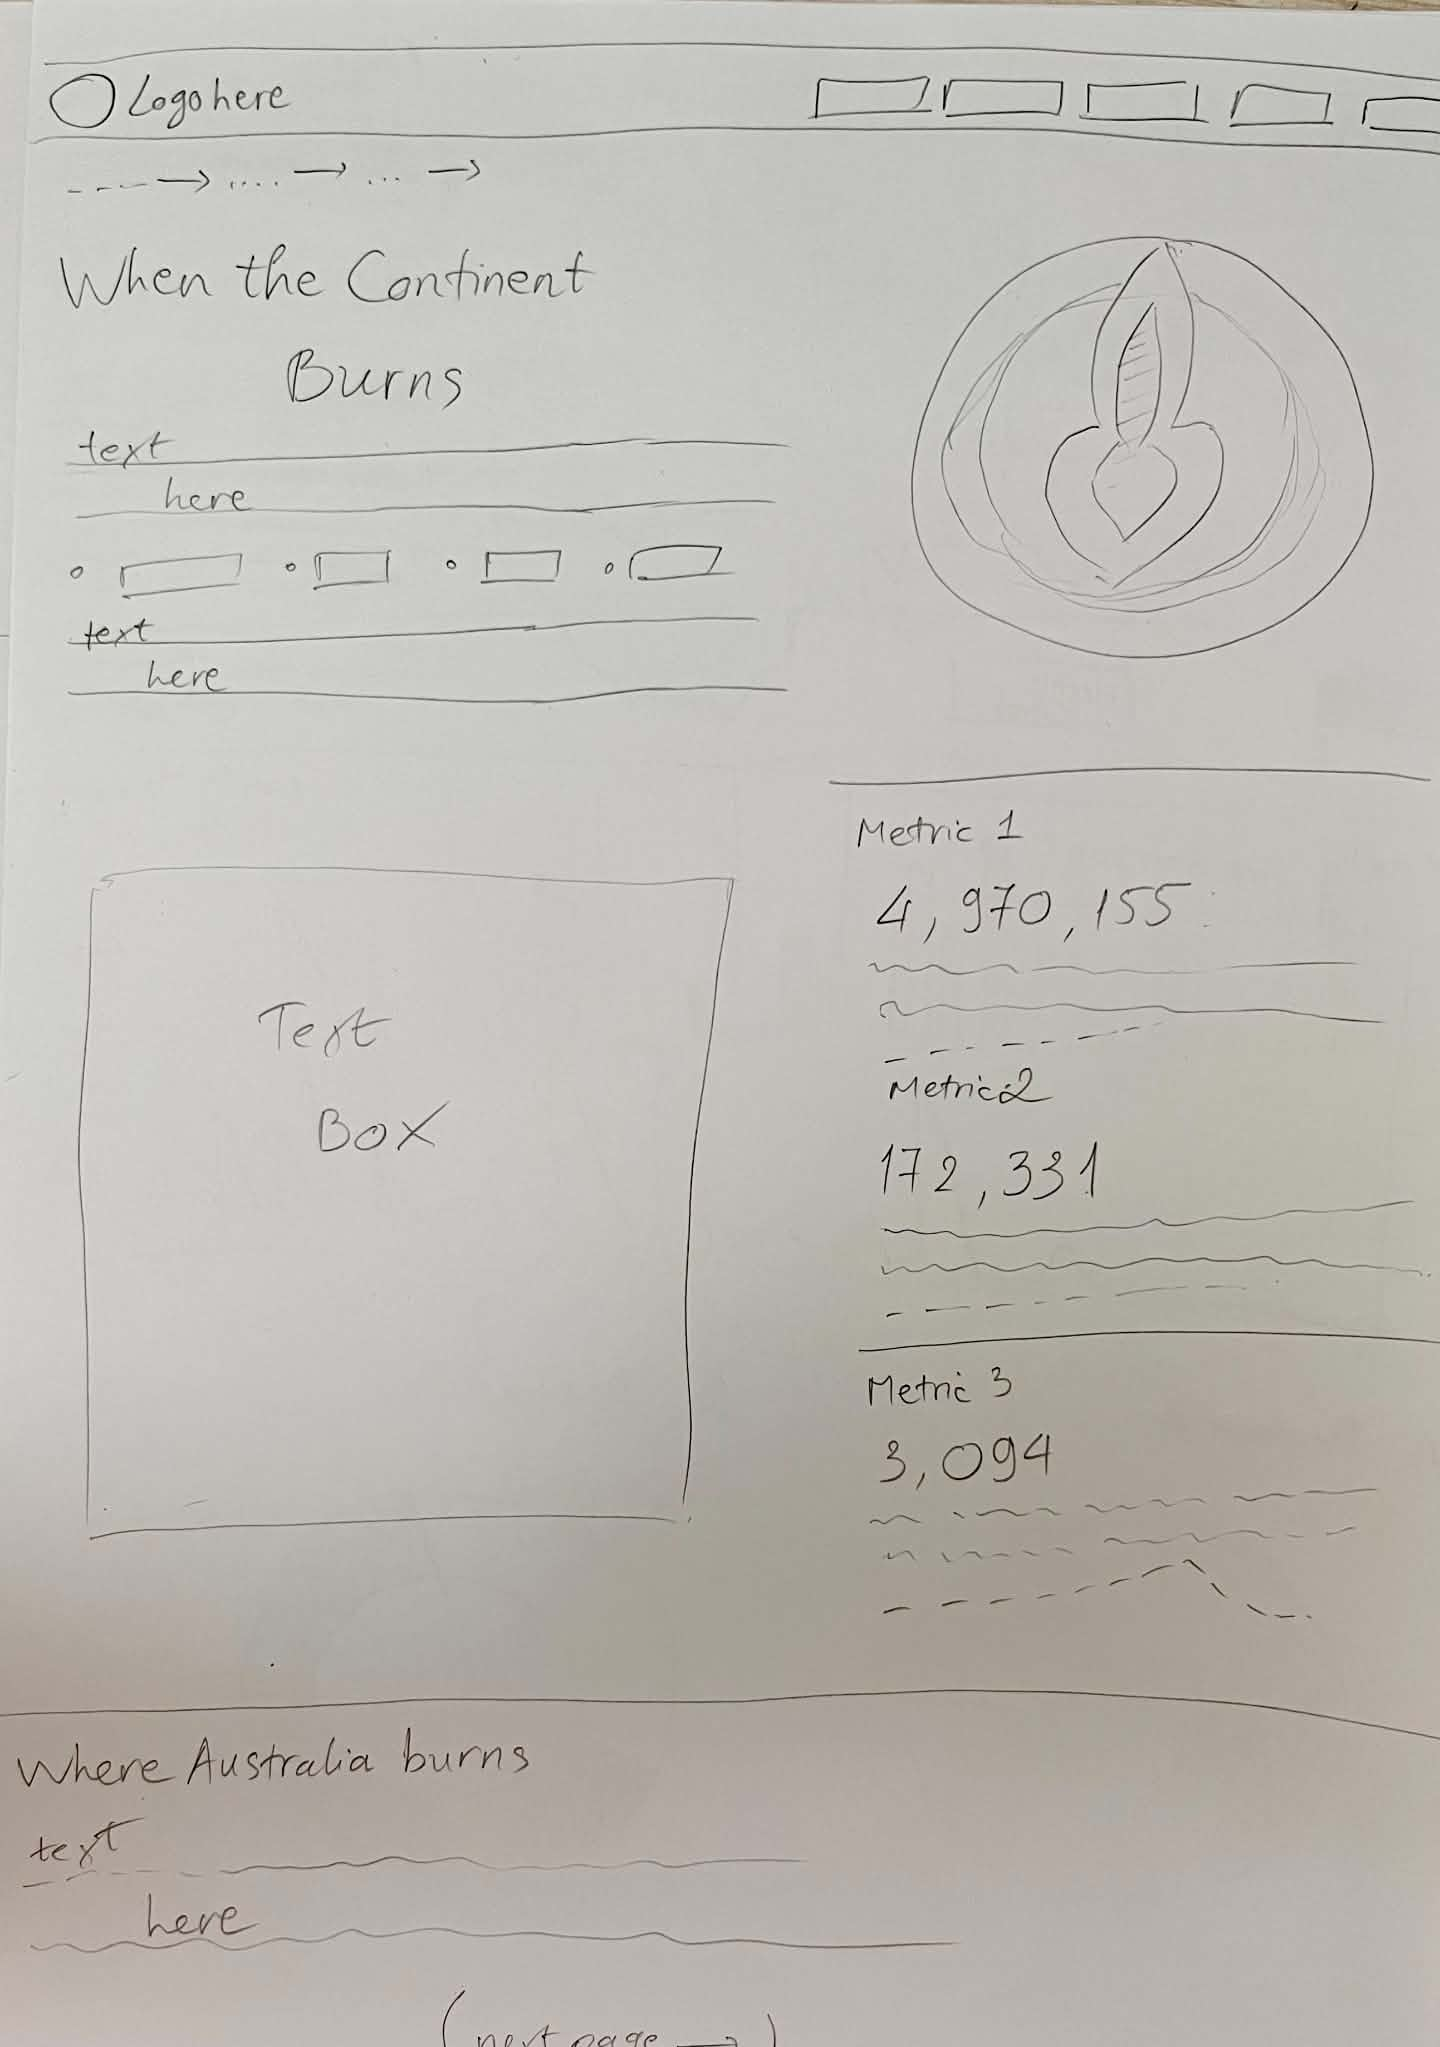 Logo here
When the Continent
Burns
text
here
text
here
Text
Box
Metric 1
4,970,155
Metric 2
172,331
Metric 3
3,094
Where Australia burns
text
here
(next page →)